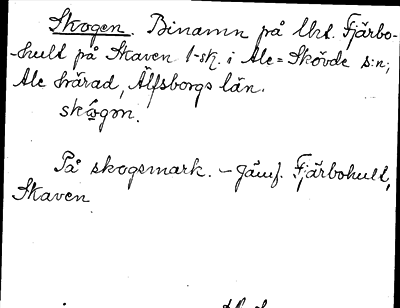 Skogen. Binamn på lht. Fjärbo-
hult på Skaven 1-sk. i Ale-Skövde s:n,
Ale härad, Älfsborgs län.
skógən.
På skogsmark. - Jämf. Fjärbohult,
Skaven